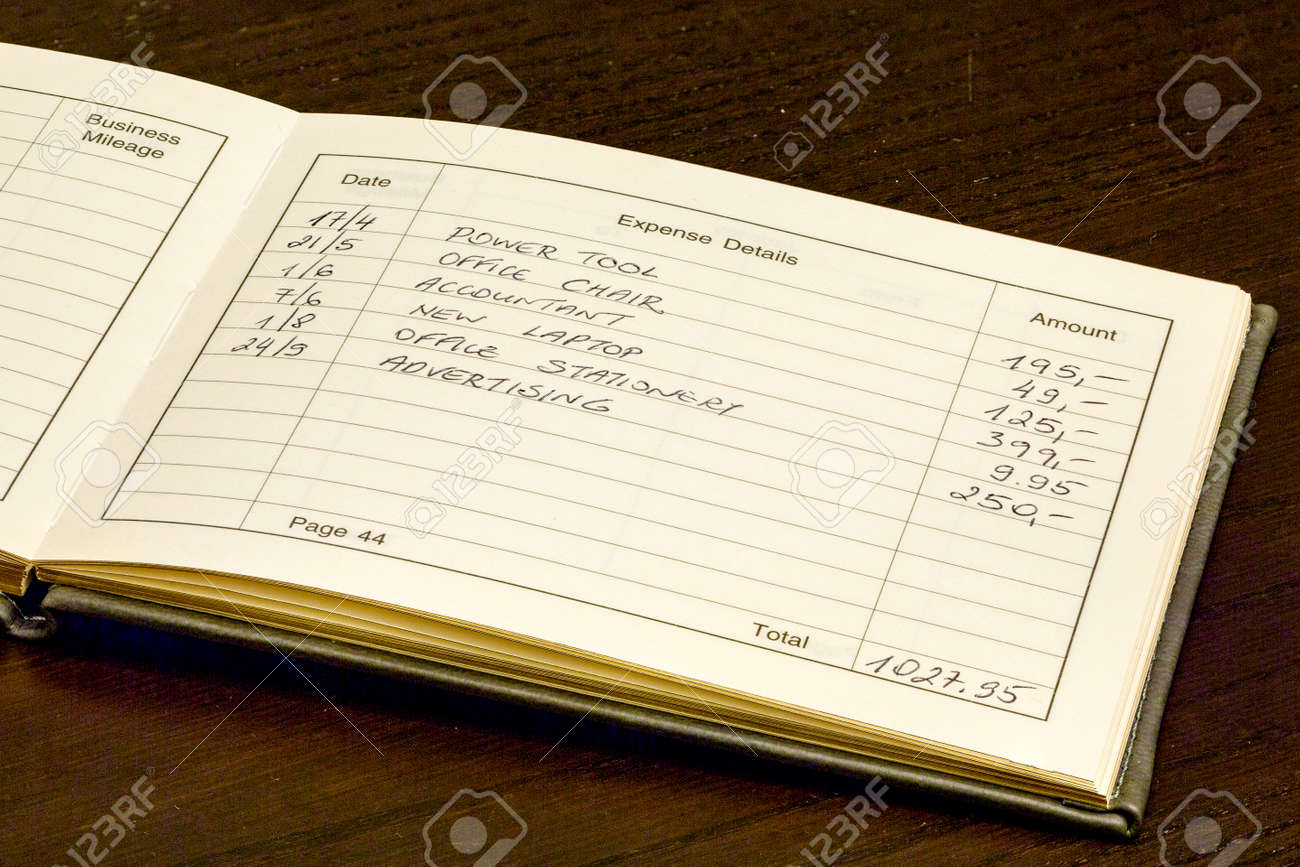 Business
Mileage
Date Expense Details Amount
17/4 POWER TOOL 195,-
21/5 OFFICE CHAIR 49,-
1/6 ACCOUNTANT 125,-
7/6 NEW LAPTOP 399,-
1/8 OFFICE STATIONERY 9.95
24/9 ADVERTISING 250,-
Page 44 Total 1027.95
123RF
123RF
123RF
123RF
123RF
123RF
123RF
123RF